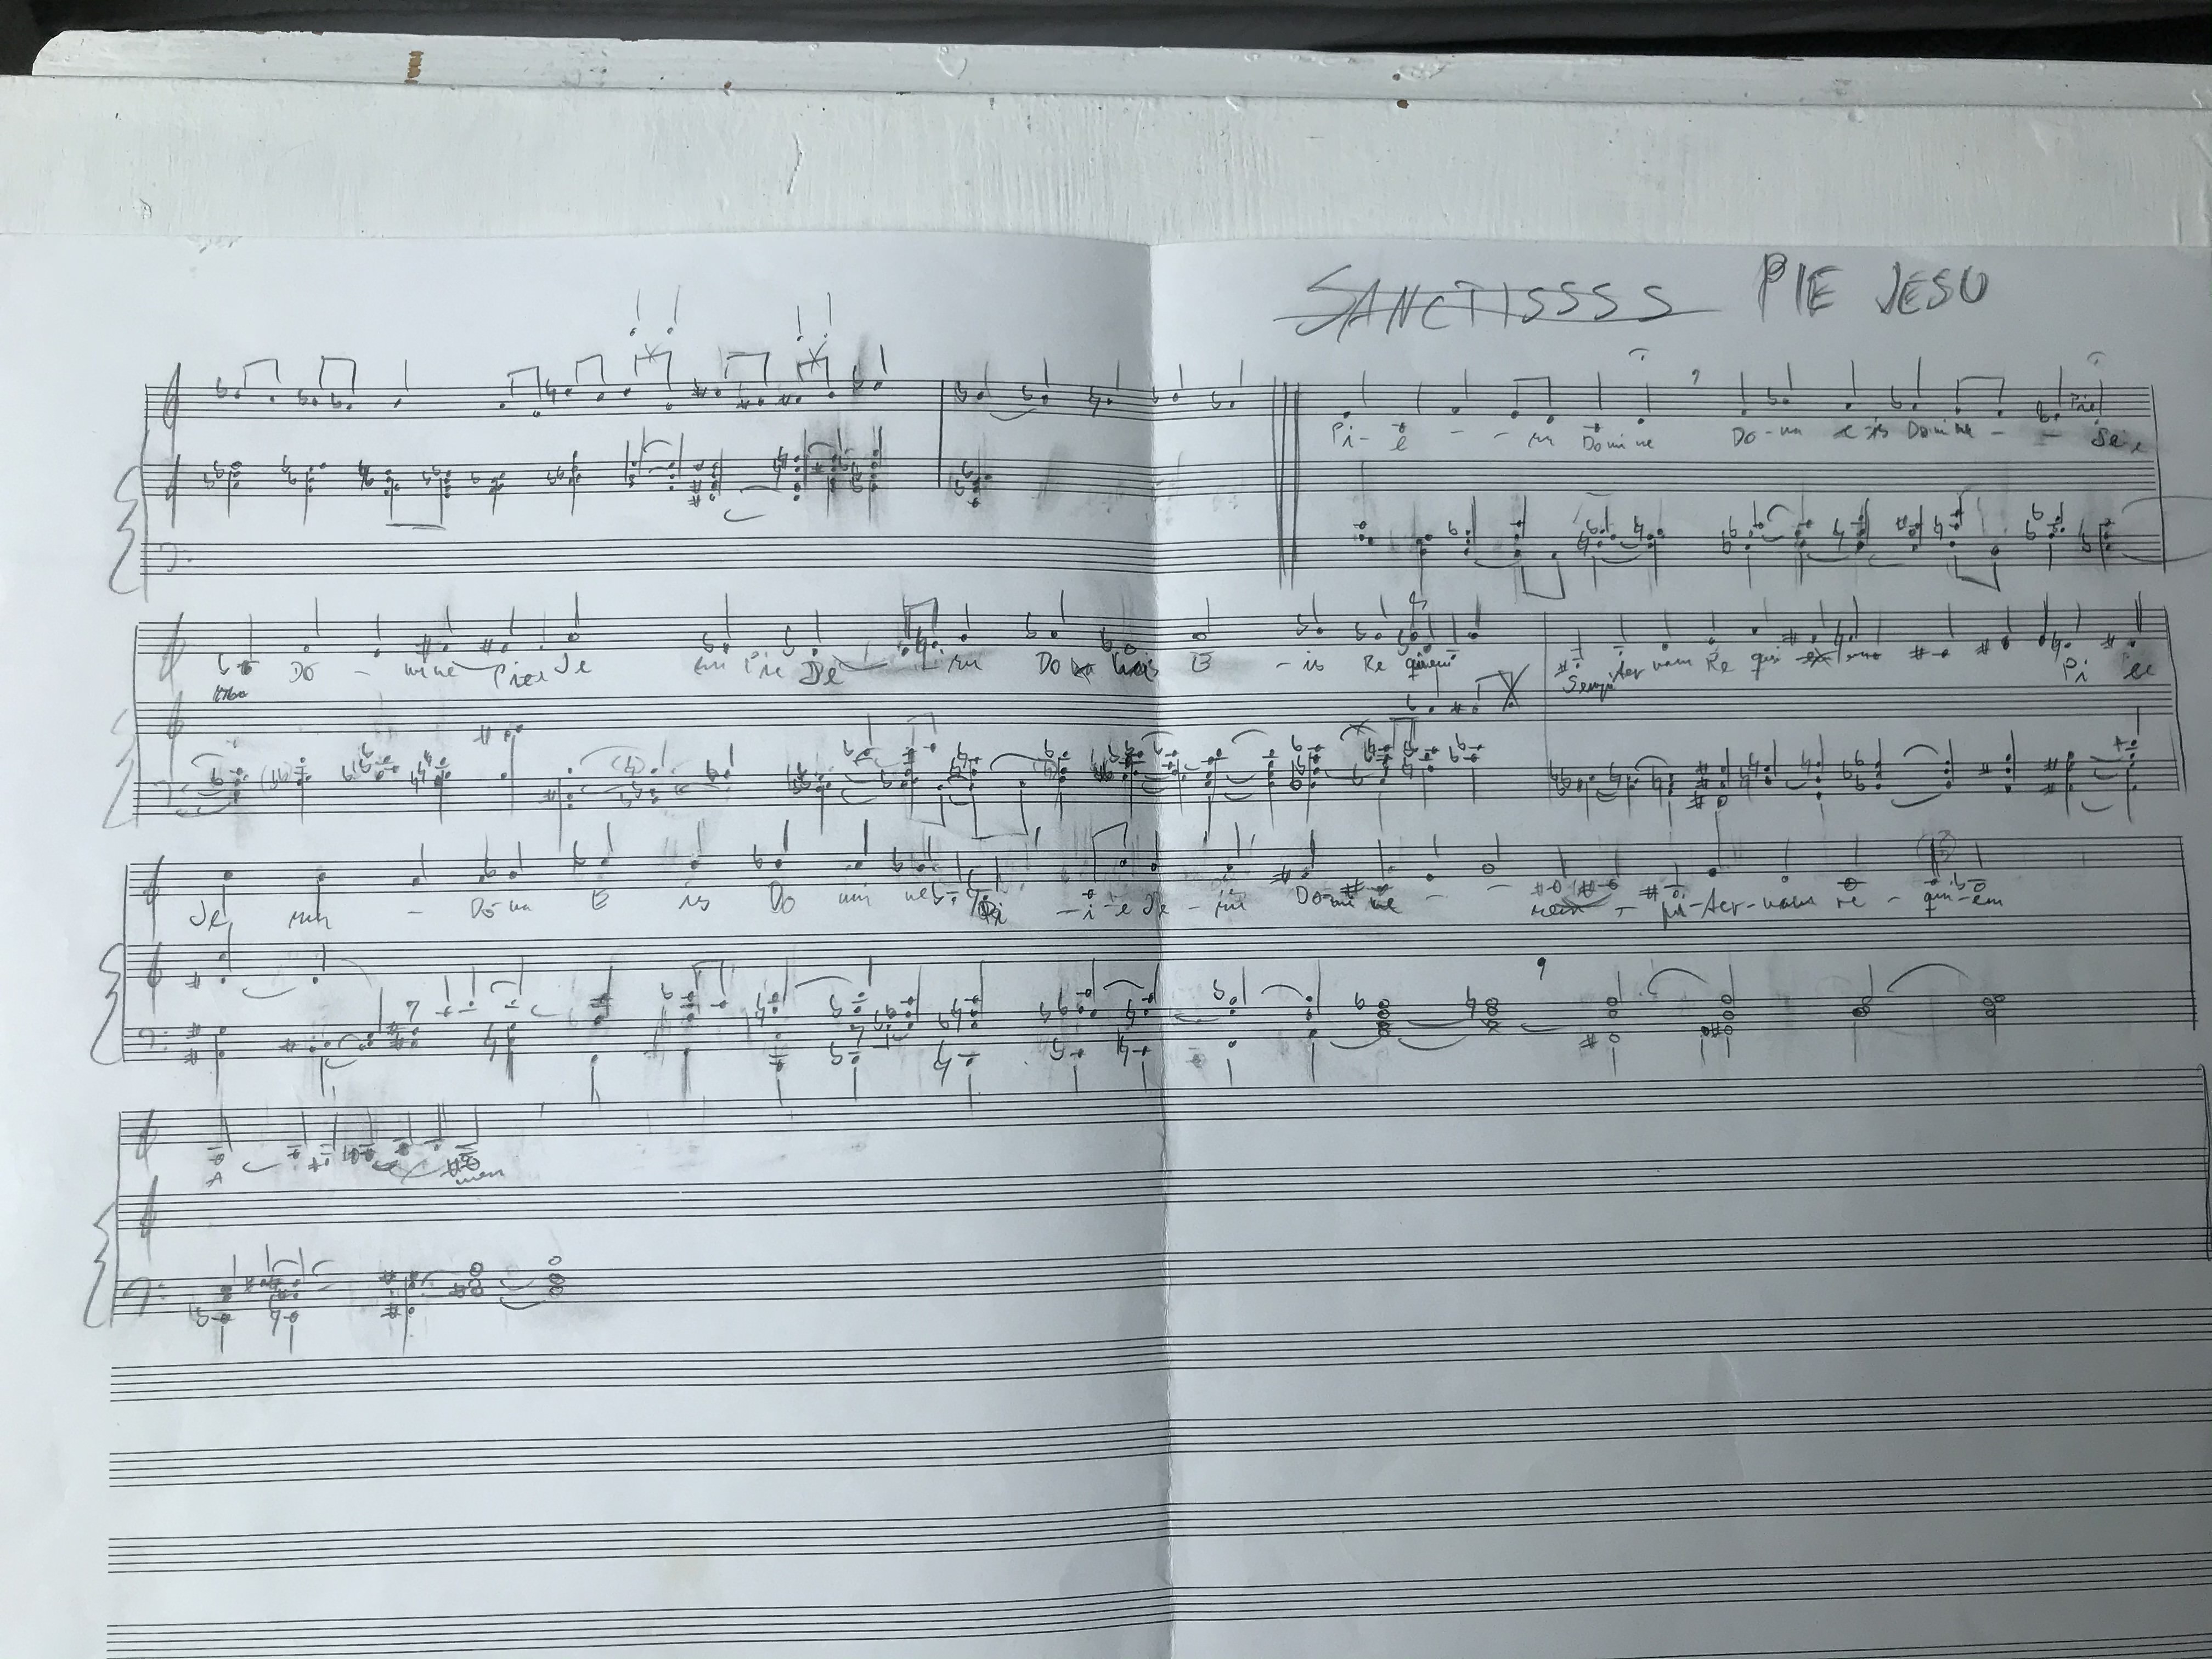 SANCTISSSS PIE JESU
Pi- e - - su Domine Do-na e-is Domine - - Pie Je
Do - mine Pie Je su Pie Je - su Do na E - is Re quiem Semp Aer nam Re qui Pi e
Je su - Do na E is Do mi ne Pi - i-e Je - su Do-mi ne - - rem - pi-Aer-nam re - qui-em
A men